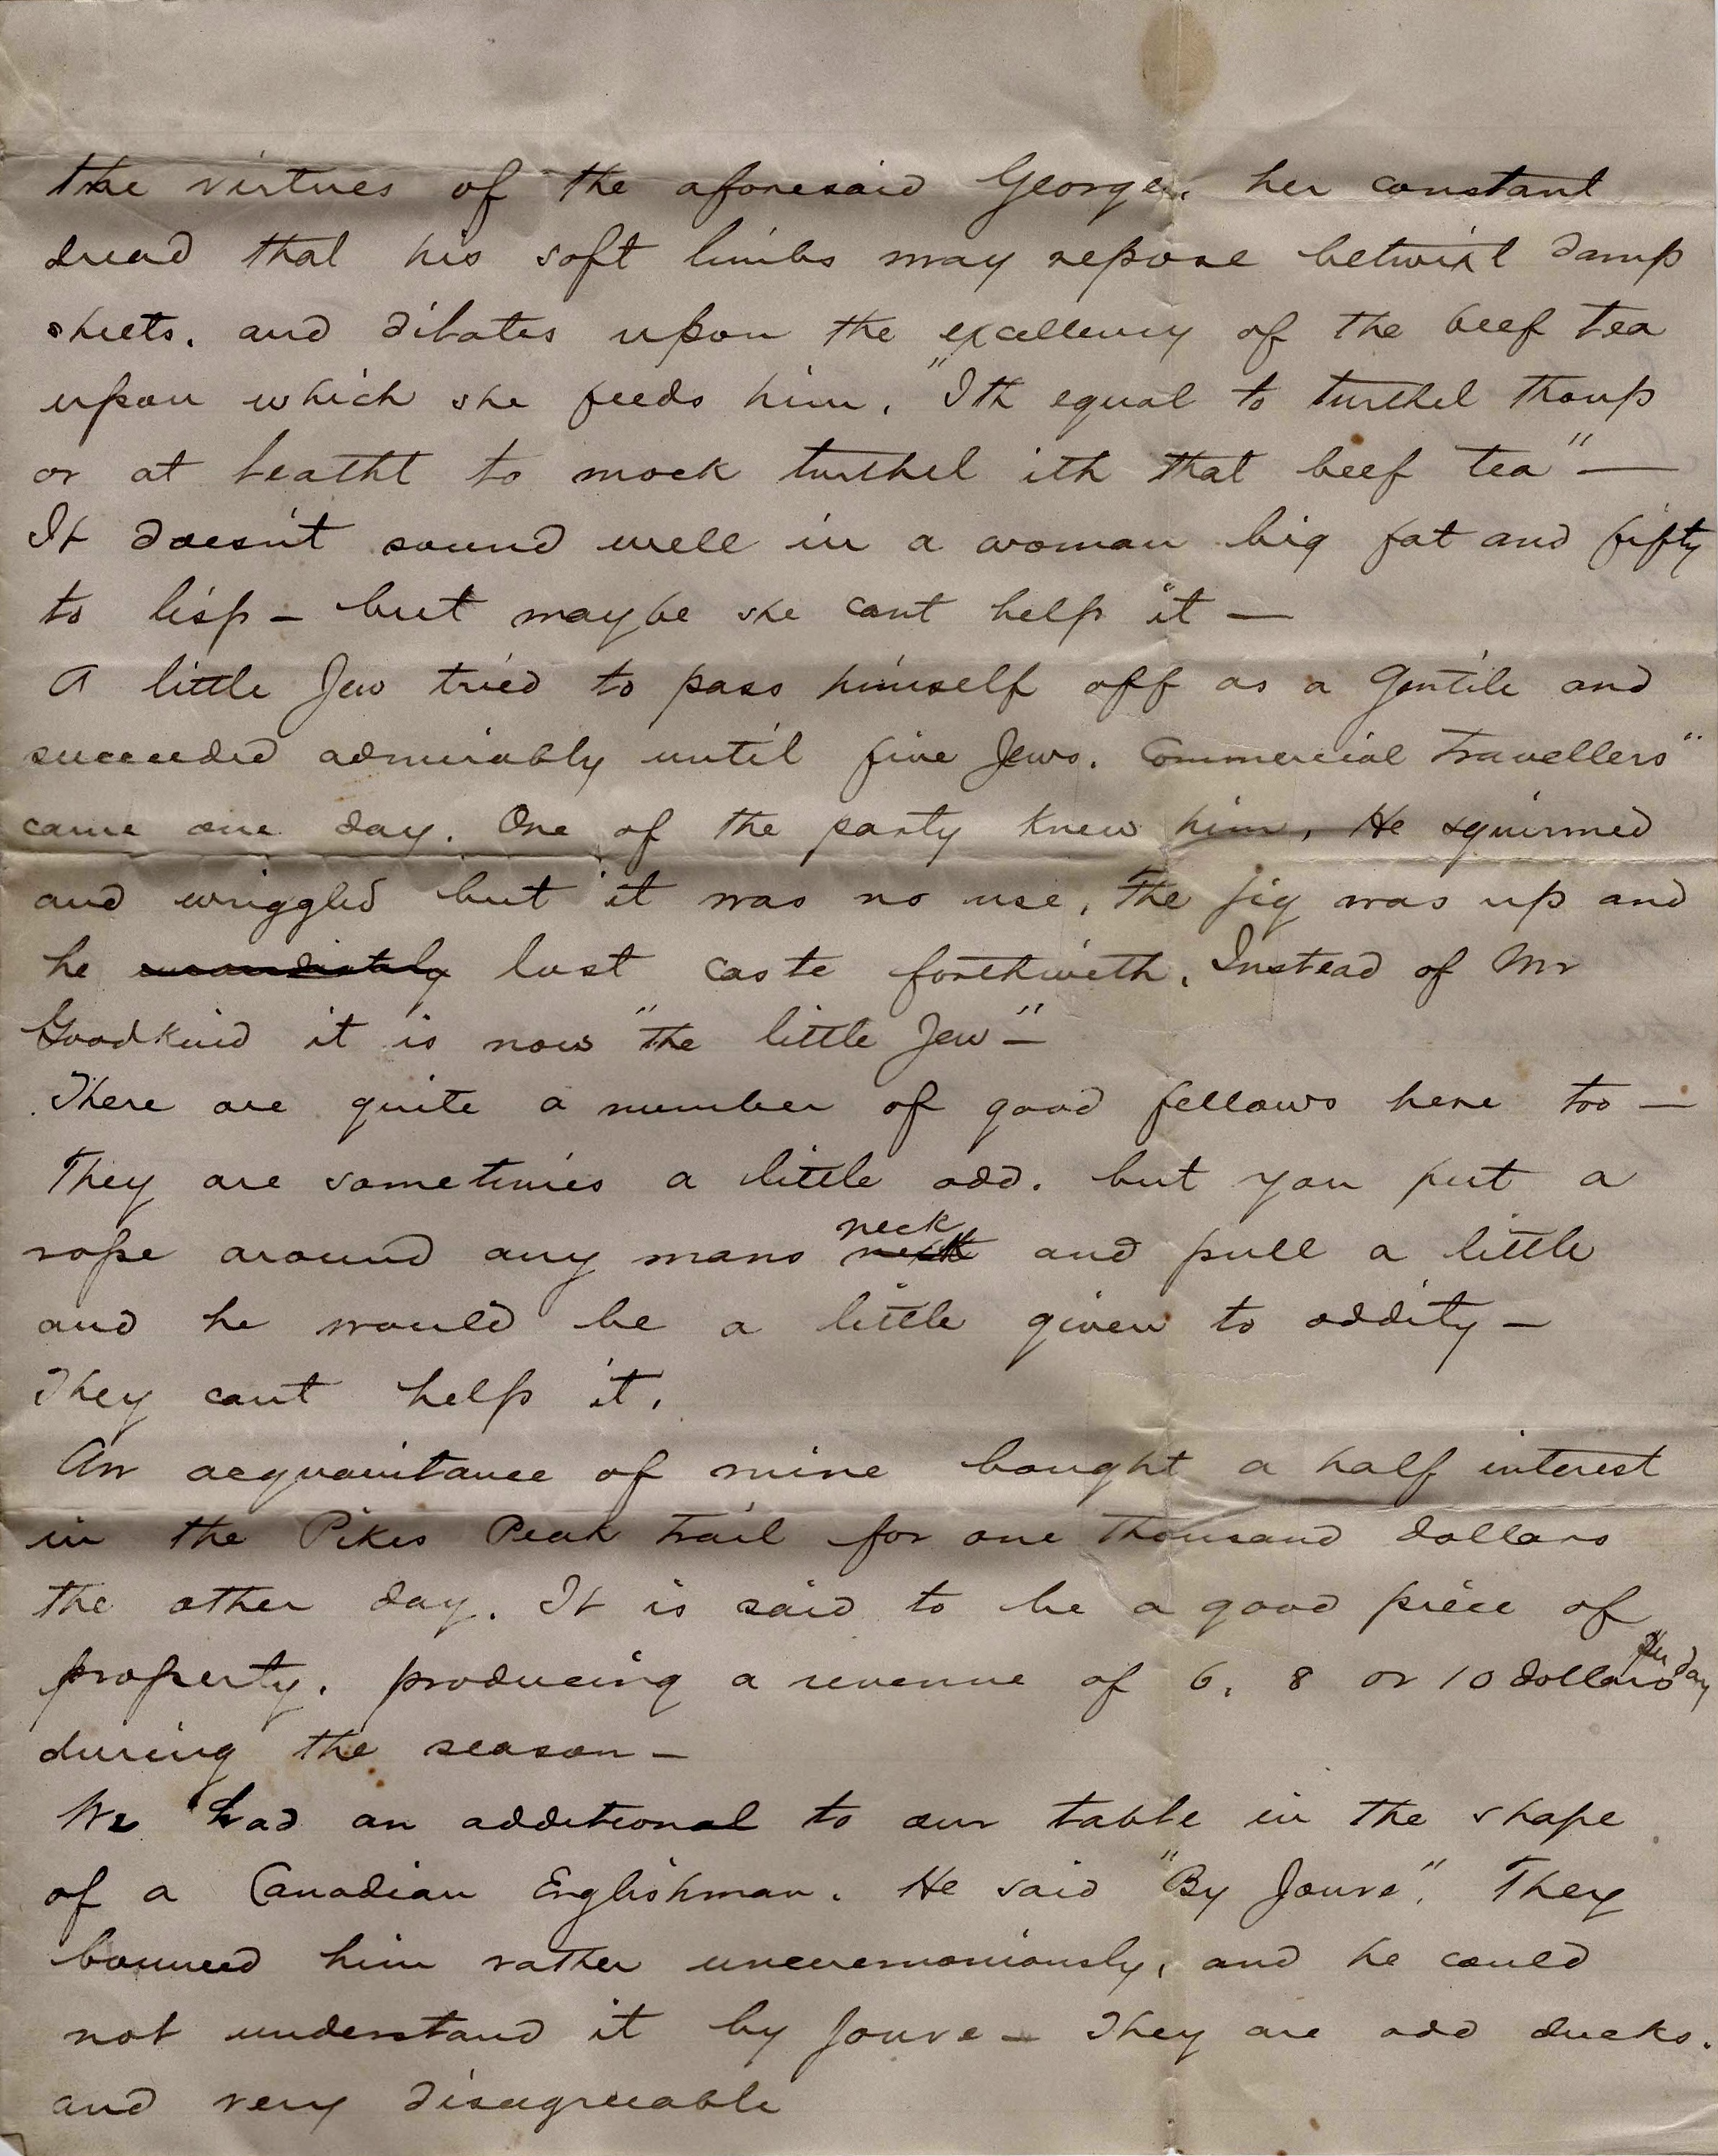 the virtues of the aforesaid George, her constant
dread that his soft limbs may repose betwixt damp
sheets, and dilates upon the excellency of the beef tea
upon which she feeds him. "Ith equal to turthel thoup
or at leatht to mock turthel ith that beef tea" —
It doesn't sound well in a woman big fat and fifty
to lisp – but maybe she cant help it —
A little Jew tried to pass himself off as a Gentile and
succeeded admirably until five Jews. Commercial Travellers"
came one day. One of the party knew him, He squirmed
and wriggled but it was no use, The jig was up and
he immediately lost caste forthwith. Instead of Mr
Goodkind it is now "the little Jew" –
There are quite a number of good fellows here too –
They are sometimes a little odd. but you put a
neck
rope around any mans neck and pull a little
and he would be a little given to oddity –
They cant help it.
An acquaintance of mine bought a half interest
in the Pikes Peak trail for one thousand dollars
the other day. It is said to be a good piece of
property. producing a revenue of 6, 8 or 10 dollars per day
during the season –
We had an additional to our table in the shape
of a Canadian Englishman. He said "By Jouve". They
bounced him rather unceremoniously, and he could
not understand it by Jouve – They are odd ducks.
and very disagreeable